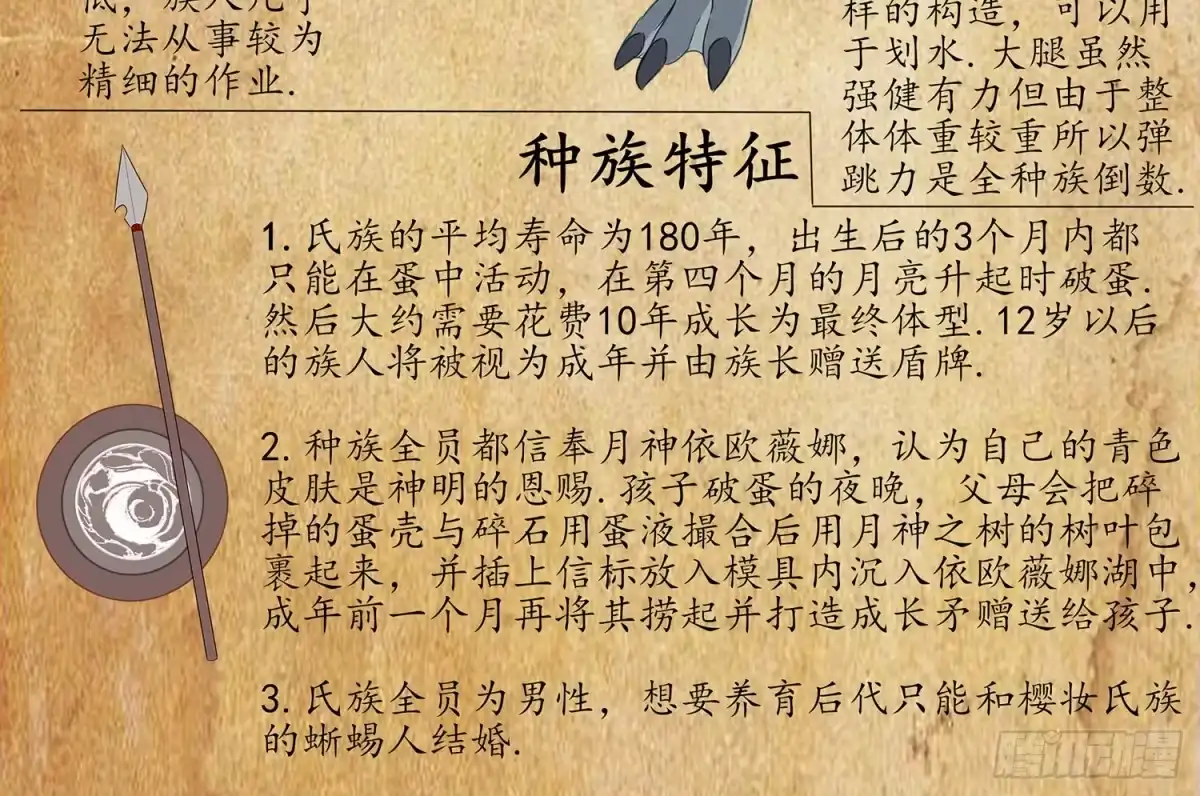 无法从事较为
精细的作业.
样的构造，可以用
于划水. 大腿虽然
强健有力但由于整
体体重较重所以弹
跳力是全种族倒数.
种族特征
1. 氏族的平均寿命为180年，出生后的3个月内都
只能在蛋中活动，在第四个月的月亮升起时破蛋.
然后大约需要花费10年成长为最终体型. 12岁以后
的族人将被视为成年并由族长赠送盾牌.
2. 种族全员都信奉月神依欧薇娜，认为自己的青色
皮肤是神明的恩赐. 孩子破蛋的夜晚，父母会把碎
掉的蛋壳与碎石用蛋液撮合后用月神之树的树叶包
裹起来，并插上信标放入模具内沉入依欧薇娜湖中，
成年前一个月再将其捞起并打造成长矛赠送给孩子.
3. 氏族全员为男性，想要养育后代只能和樱妆氏族
的蜥蜴人结婚.
腾讯动漫